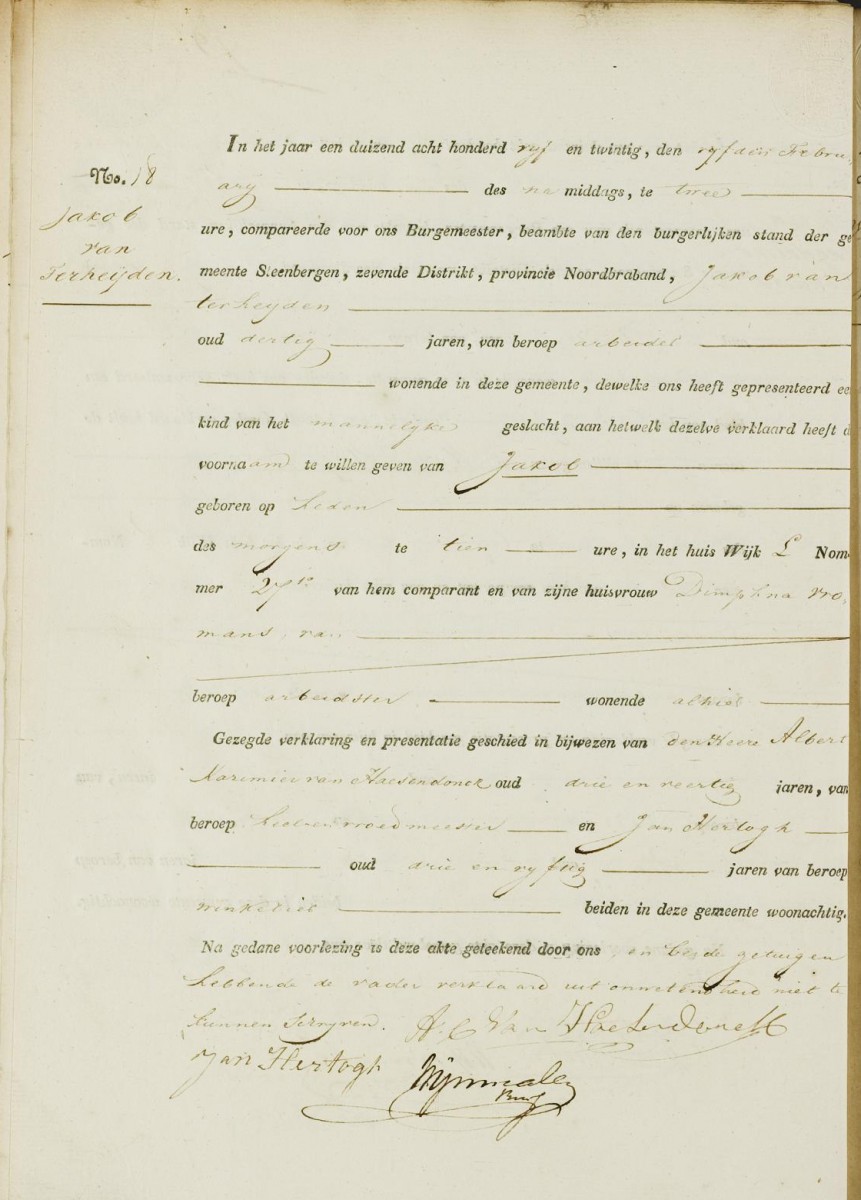 No. 18
Jakob
van
Terheijden.
In het jaar een duizend acht honderd vyf en twintig, den vyfden Febru-
ary des na middags, te twee
ure, compareerde voor ons Burgemeester, beambte van den burgerlijken stand der ge
meente Steenbergen, zevende Distrikt, provincie Noordbraband, Jakob van
terheyden
oud dertig jaren, van beroep arbeider
wonende in deze gemeente, dewelke ons heeft gepresenteerd ee
kind van het mannelyke geslacht, aan hetwelk dezelve verklaard heeft d
voornaam te willen geven van Jakob
geboren op heden
des morgens te tien ure, in het huis Wijk L Nom-
mer 27 van hem comparant en van zijne huisvrouw Dimphna Vro-
mans, van
beroep arbeidster wonende alhier
Gezegde verklaring en presentatie geschied in bijwezen van den Heer Albert
Kazimier van Haesendonck oud drie en veertig jaren, van
beroep heel en vroedmeester en Jan Hertogh
oud drie en vyftig jaren van beroep
winkelier beiden in deze gemeente woonachtig.
Na gedane voorlezing is deze akte geteekend door ons, en beide getuigen
hebbende de vader verklaard uit onwetendheid niet te
kunnen schryven. A. C. Van Haesendonck
Jan Hertogh
Burg